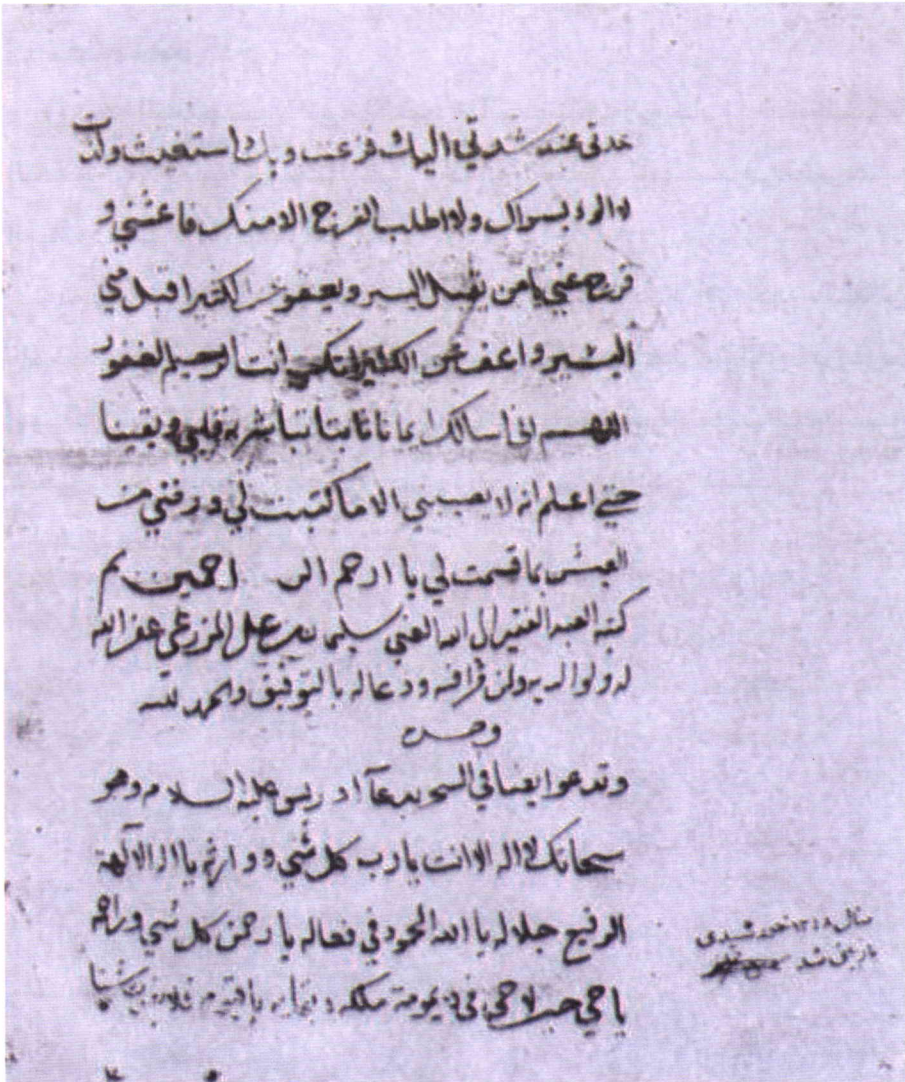 عدتي عند شدتي اليك فزعت وبك استغيث ولذت
لا الوذ بسواك ولا اطلب الفرج الا منك فاغثني و
فرج عني يا من يقبل اليسير ويعفو عن الكثير اقبل مني
اليسير واعف عن الكثير انك انت الرحيم الغفور
اللهم اني اسالك ايمانا ثابتا تباشر به قلبي ويقينا
حتي اعلم انه لا يصيبني الا ما كتبت لي ورضني من
العيش بما قسمت لي يا ارحم الراحمين تم
كتبه العبد الفقير الى الله الغني سليمان بن علي المزرعي غفر الله
له ولوالديه ولمن قرا فيه ودعا له بالتوفيق والحمد لله
وحده
وتدعوا ايضا في السحر بدعآ ادريس عليه السلام وهو
سبحانك لا اله الا انت يا رب كل شي ووارثه يا اله الآلهة
الرفيع جلاله يا الله المحمود في فعاله يا رحمن كل شي وراحمه
يا حي حين لا حي في ديمومة ملكه وبقائه يا قيوم فلا شيئا
سال خورشیدی
بازبینی شد